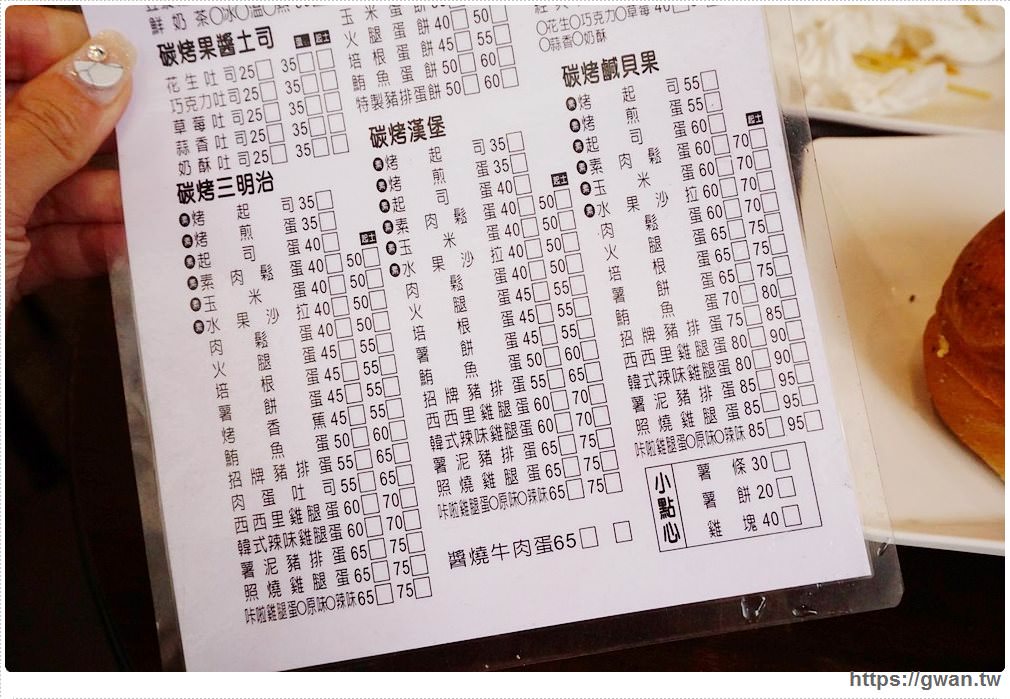 鮮奶茶○冰○溫○熱
碳烤果醬土司 蛋 起士
花生吐司25□ 35□□
巧克力吐司25□ 35□□
草莓吐司25□ 35□□
蒜香吐司25□ 35□□
奶酥吐司25□ 35□□
碳烤三明治
素烤起司35□
素烤煎蛋35□
素起司蛋40□ 起士
素素肉鬆蛋40□50□
素玉米蛋40□50□
素水果沙拉40□50□
肉鬆蛋40□50□
火腿蛋45□55□
培根蛋45□55□
薯餅蛋45□55□
烤香蕉45□55□
鮪魚蛋50□60□
招牌豬排蛋55□65□
肉蛋吐司55□65□
西西里雞腿蛋60□70□
韓式辣味雞腿蛋60□70□
薯泥豬排蛋65□75□
照燒雞腿蛋65□75□
咔啦雞腿蛋○原味○辣味65□75□
玉米蛋
火腿蛋餅40□ 50□
培根蛋餅45□ 55□
鮪魚蛋餅
特製豬排蛋餅50□ 60□
碳烤漢堡
素烤起司35□
素烤煎蛋35□
素起司蛋40□ 起士
素素肉鬆蛋40□50□
素玉米蛋40□50□
素水果沙拉40□50□
肉鬆蛋40□50□
火腿蛋45□55□
培根蛋45□55□
薯餅蛋45□55□
鮪魚蛋50□60□
招牌豬排蛋55□65□
西西里雞腿蛋60□70□
韓式辣味雞腿蛋60□70□
薯泥豬排蛋65□75□
照燒雞腿蛋65□75□
咔啦雞腿蛋○原味○辣味65□75□
醬燒牛肉蛋65□ □
○花生○巧克力○草莓
○蒜香○奶酥
碳烤鹹貝果
素烤起司55□
素烤煎蛋55□
素起司蛋60□ 起士
素素肉鬆蛋60□70□
素玉米蛋60□70□
素水果沙拉60□70□
肉鬆蛋60□70□
火腿蛋65□75□
培根蛋65□75□
薯餅蛋65□75□
鮪魚蛋70□80□
招牌豬排蛋75□85□
西西里雞腿蛋80□90□
韓式辣味雞腿蛋80□90□
薯泥豬排蛋85□95□
照燒雞腿蛋85□95□
咔啦雞腿蛋○原味○辣味85□95□
小點心
薯條30□
薯餅20□
雞塊40□
https://gwan.tw